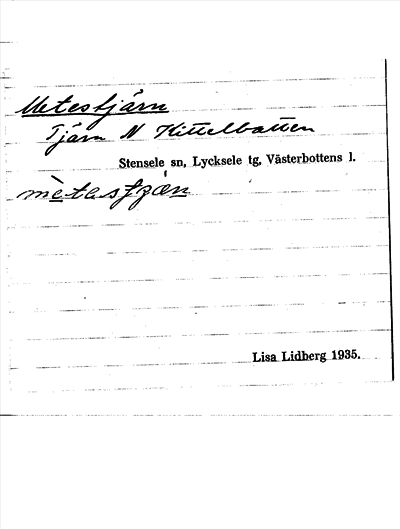 Metestjärn
Tjärn N Kittelbotten
Stensele sn, Lycksele tg, Västerbottens l.
Lisa Lidberg 1935.